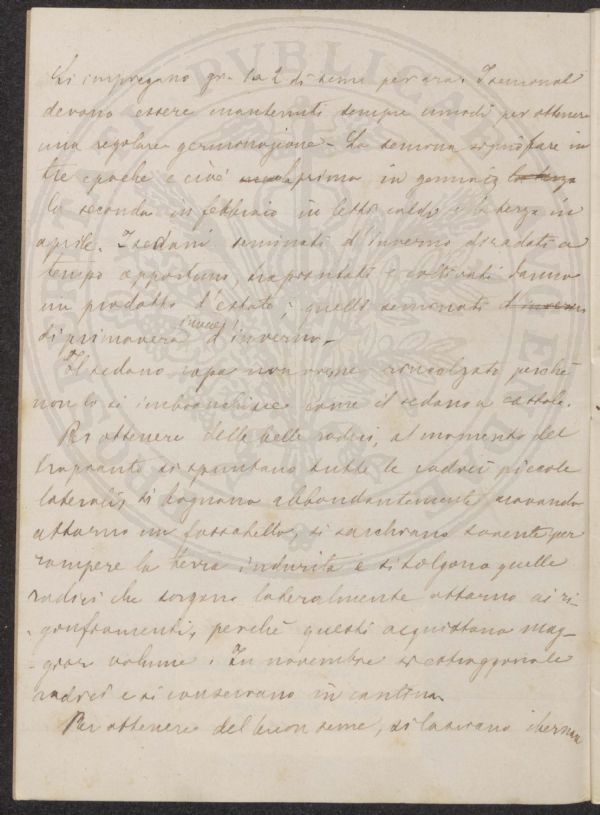 Si impiegano gr. 1 a 2 di seme per ara. I seminati
devono essere mantenuti sempre umidi per ottenere
una regolare germinazione. La semina si può fare in
tre epoche e cioè prima in gennaio la terza
la seconda in febbraio in letti caldi e la terza in
aprile. I sedani seminati d'inverno diradati a
tempo opportuno, trapiantati e coltivati danno
un prodotto d'estate; quelli seminati d'inverno
di primavera invece d'inverno.
Il sedano rapa non viene rincolzato perchè
non lo si imbianchisce come il sedano a costole.
Per ottenere delle belle radici, al momento del
trapianto si spuntano tutte le radici piccole
laterali, si bagnano abbondantemente scavando
attorno un fossatello, si sarchiano sovente per
rompere la terra indurita e si tolgono quelle
radici che sorgono lateralmente attorno ai ri-
-gonfiamenti, perchè questi acquistano mag-
-gior volume. In novembre si estraggono le
radici e si conservano in cantina.
Per ottenere del buon seme, si lasciano